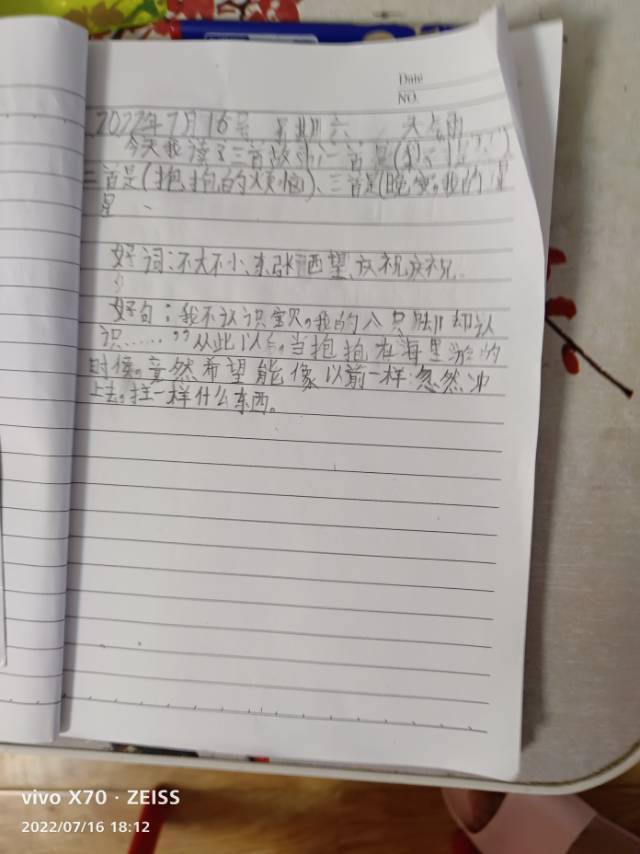 Date
NO.
2022年7月16号 星期六 天气雨
今天我读了三首故事,一首是(
二首是(抱抱的烦恼)、三首是(晚安,我的
星、
好词:不大不小、东张西望、庆祝庆祝.
好句:我不认识宝贝,我的八只脚却认
识……”从此以后,当抱抱在海里游的
时候,竟然希望能像以前一样:忽然冲
上去,拄一样什么东西。
vivo X70 · ZEISS
2022/07/16 18:12